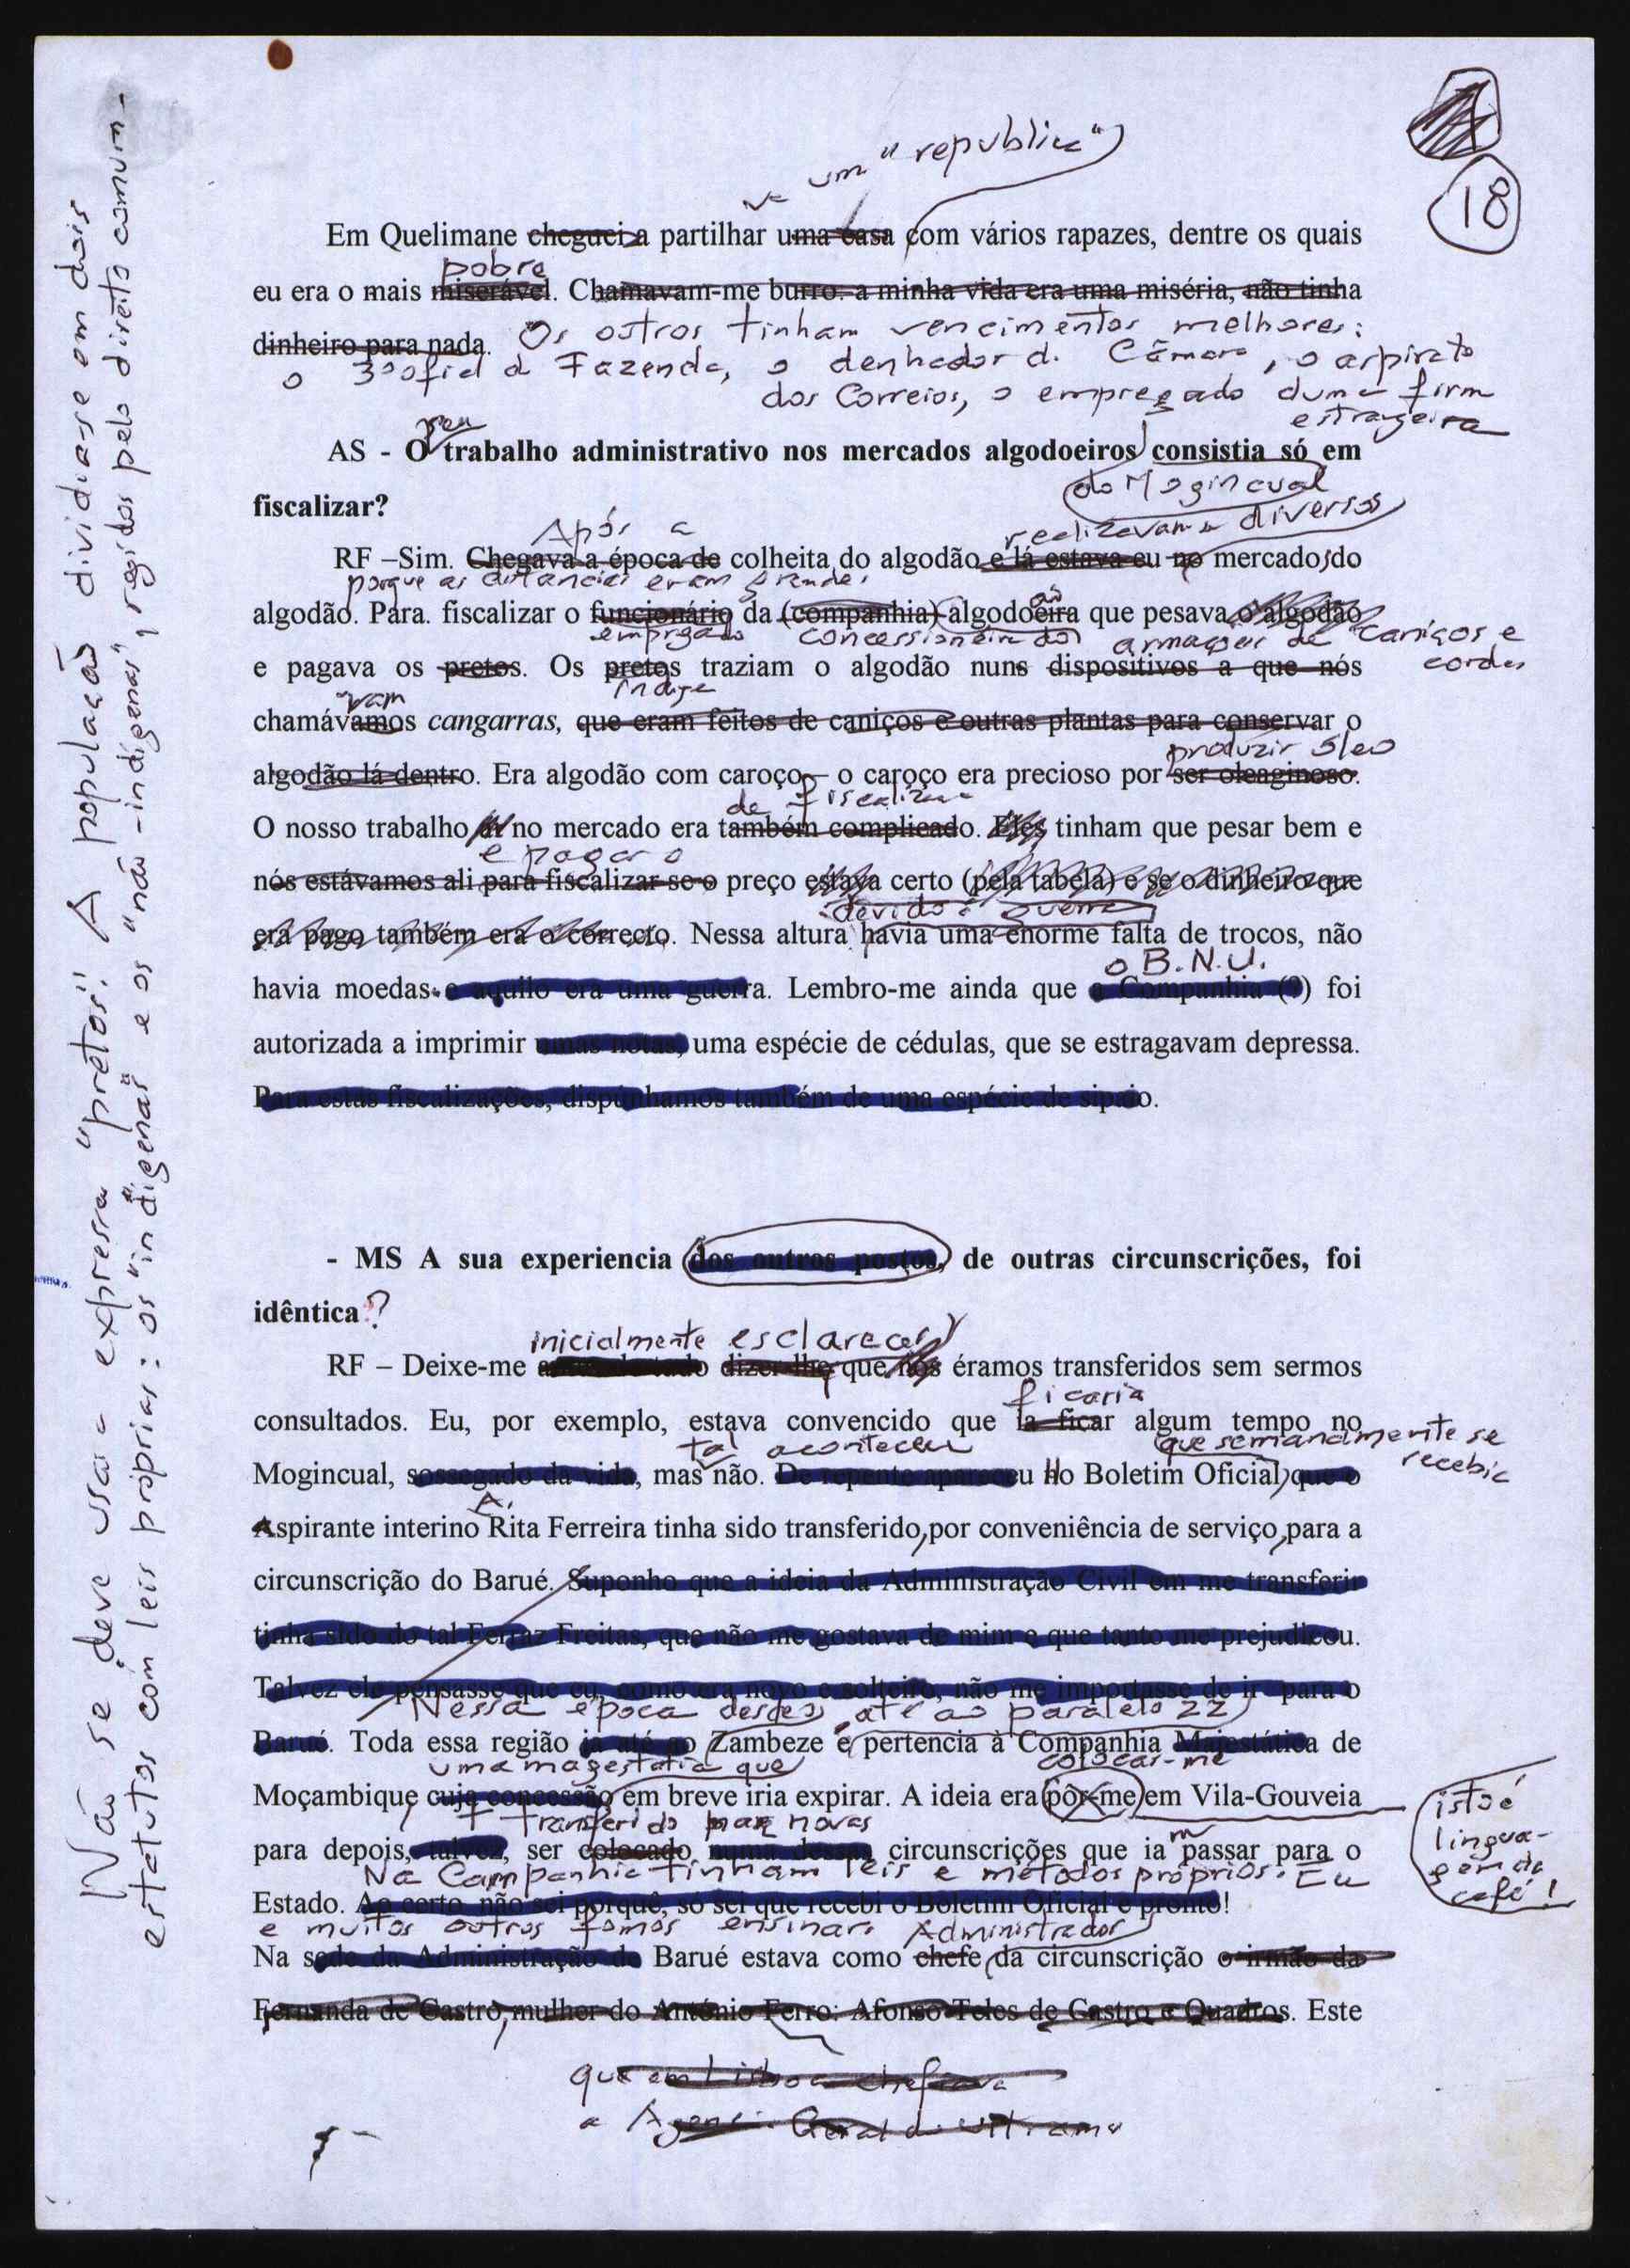 18
um "republica"
Em Quelimane cheguei a partilhar uma casa com vários rapazes, dentre os quais
pobre
eu era o mais miserável. Chamavam-me burro: a minha vida era uma miséria, não tinha
dinheiro para nada. Os outros tinham vencimentos melhores:
o 3º ofiel d Fazenda, o d. Câmara, o aspirato
dos Correios, o empregado duma firm
estrangeira
seu
AS - O trabalho administrativo nos mercados algodoeiros consistia só em
do Mogincual
fiscalizar?
Após a realizavam diversos
RF –Sim. Chegava a época de colheita do algodão e lá estava eu no mercado do
porque as distancias eram grandes
algodão. Para. fiscalizar o funcionário da (companhia) algodoeira que pesava o algodão
empregado concessioneira do armações de caniços e
cordas
e pagava os pretos. Os pretos traziam o algodão nuns dispositivos a que nós
indige
vam
chamávamos cangarras, que eram feitos de caniços e outras plantas para conservar o
produzir óleo
algodão lá dentro. Era algodão com caroço – o caroço era precioso por ser oleaginoso.
de fiscalizar
O nosso trabalho no mercado era também complicado. Eles tinham que pesar bem e
e pagar o
nós estávamos ali para fiscalizar se o preço estava certo (pela tabela) e se o dinheiro que
devido à guerra
era pago também era o correcto. Nessa altura havia uma enorme falta de trocos, não
o B.N.U.
havia moedas e aquilo era uma guerra. Lembro-me ainda que a Companhia (?) foi
autorizada a imprimir umas notas, uma espécie de cédulas, que se estragavam depressa.
Para estas fiscalizações, dispúnhamos também de uma espécie de sipaio.
- MS A sua experiencia dos outros postos, de outras circunscrições, foi
idêntica?
inicialmente esclarecer
RF – Deixe-me dizer-lhe que nós éramos transferidos sem sermos
ficaria
consultados. Eu, por exemplo, estava convencido que ia ficar algum tempo no
tal aconteceu que semanamente se
recebia
Mogincual, sossegado da vida, mas não. De repente apareceu No Boletim Oficial, que o
A.
Aspirante interino Rita Ferreira tinha sido transferido, por conveniência de serviço, para a
circunscrição do Barué. Suponho que a ideia da Administração Civil em me transferir
tinha sido do tal Ferraz Freitas, que não me gostava de mim e que tanto me prejudicou.
Talvez ele pensasse que eu, como era novo e solteiro, não me importasse de ir para o
Nessa época desde o até ao paralelo 22
Barué. Toda essa região ia até ao Zambeze e pertencia à Companhia Majestática de
uma magestatia que colocar-me
Moçambique cuja concessão em breve iria expirar. A ideia era pôr-me em Vila-Gouveia
transferido para novas
para depois, talvez, ser colocado numa dessas circunscrições que iam passar para o
Na Companhia tinham leis e métodos próprios. Eu
Estado. Ao certo, não sei porquê, só sei que recebi o Boletim Oficial e pronto!
e muitos outros fomos ensinar. Administrador
Na sede da Administração do Barué estava como chefe da circunscrição o irmão da
Fernanda de Castro, mulher do António Ferro: Afonso Teles de Castro e Quadros. Este
que em Lisboa chefiava
a Agencia Geral do Ultramar
isto é
lingua-
gem de
café!
Não se deve usar a expressa "pretos". A população dividia-se em dois
estatutos com leis próprias: os "indígenas" e os "não-indígenas", regidos pelo direito comum-